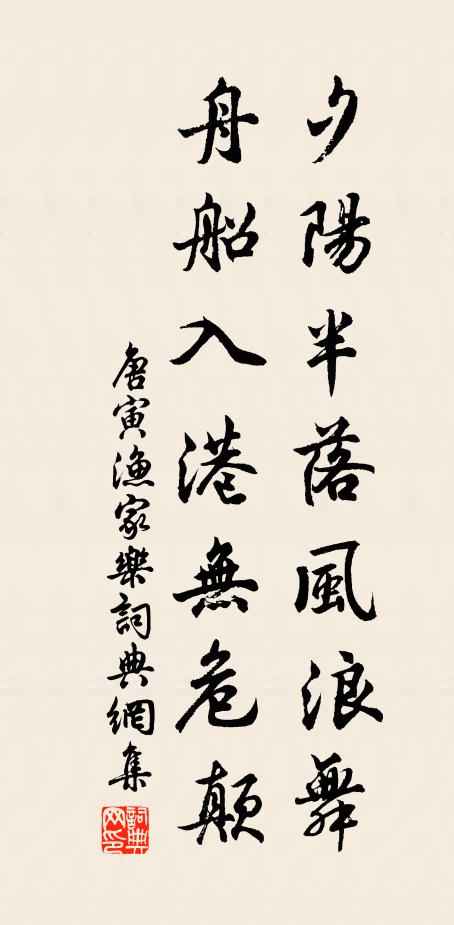 夕陽半落風浪舞
舟船入港無危顛
唐寅漁家樂詞典網集
詞典
网印